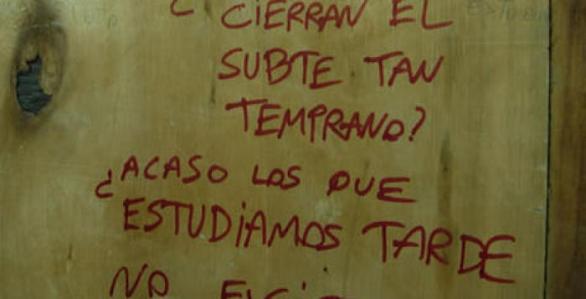 ¿ CIERRAN EL
SUBTE TAN
TEMPRANO?
¿ACASO LOS QUE
ESTUDIAMOS TARDE
NO